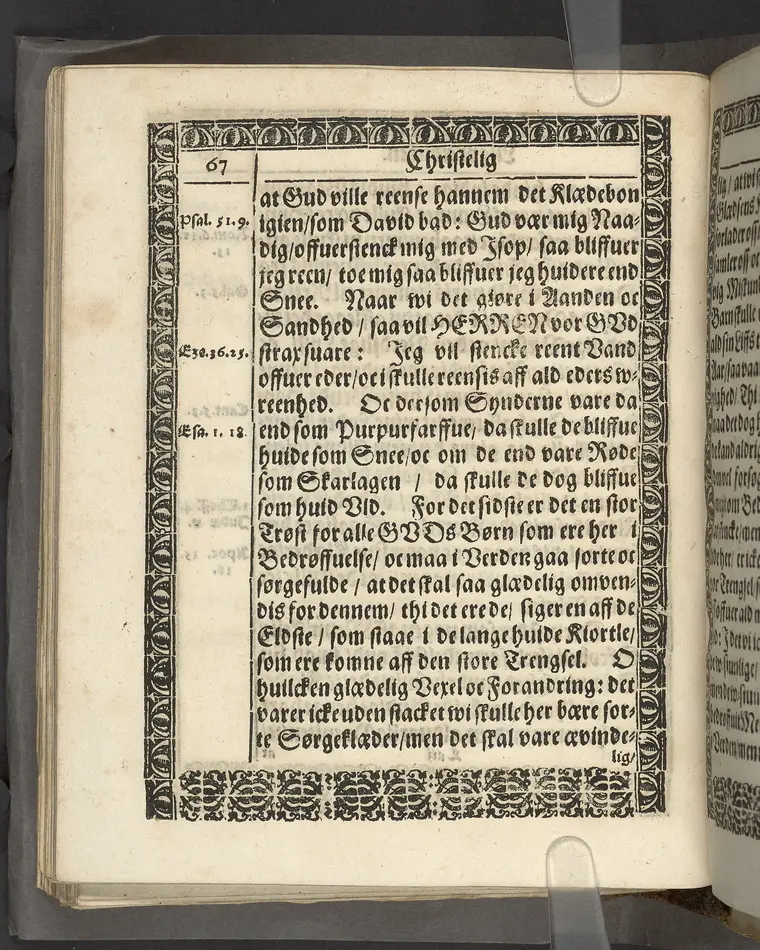 67
Christelig
at Gud ville reense hannem det Klædebon
Psal. 51. 9.
igien/som David bad: Gud vær mig Naa-
dig/offuerstenck mig med Jsop/ saa bliffuer
jeg reen/ toe mig saa bliffuer jeg huidere end
Snee. Naar wi det giøre i Aanden oc
Sandhed / saa vil HERREN vor GVd
Eze. 36. 25.
strax suare: Jeg vil stencke reent Vand
offuer eder/oc i skulle reensis aff ald eders w-
reenhed. Oc dersom Synderne vare da
Esa. 1. 18.
end som Purpurfarffue/ da skulle de bliffue
huide som Snee/oc om de end vare Røde
som Skarlagen / da skulle de dog bliffue
som huid Vld. For det sidste er det en stor
Trøst for alle GVDs Børn som ere her i
Bedrøffuelse/ oc maa i Verden gaa sorte oc
sørgefulde / at det skal saa glædelig omven-
dis for dennem/ thi det ere de/ siger en aff de
Eldste / som staae i de lange huide Kiortle/
som ere komne aff den store Trengsel. O
huilcken glædelig Vexel oc Forandring: det
varer icke uden stacket wi skulle her bære sor-
te Sørgeklæder/men det skal vare ævinde-
lig/